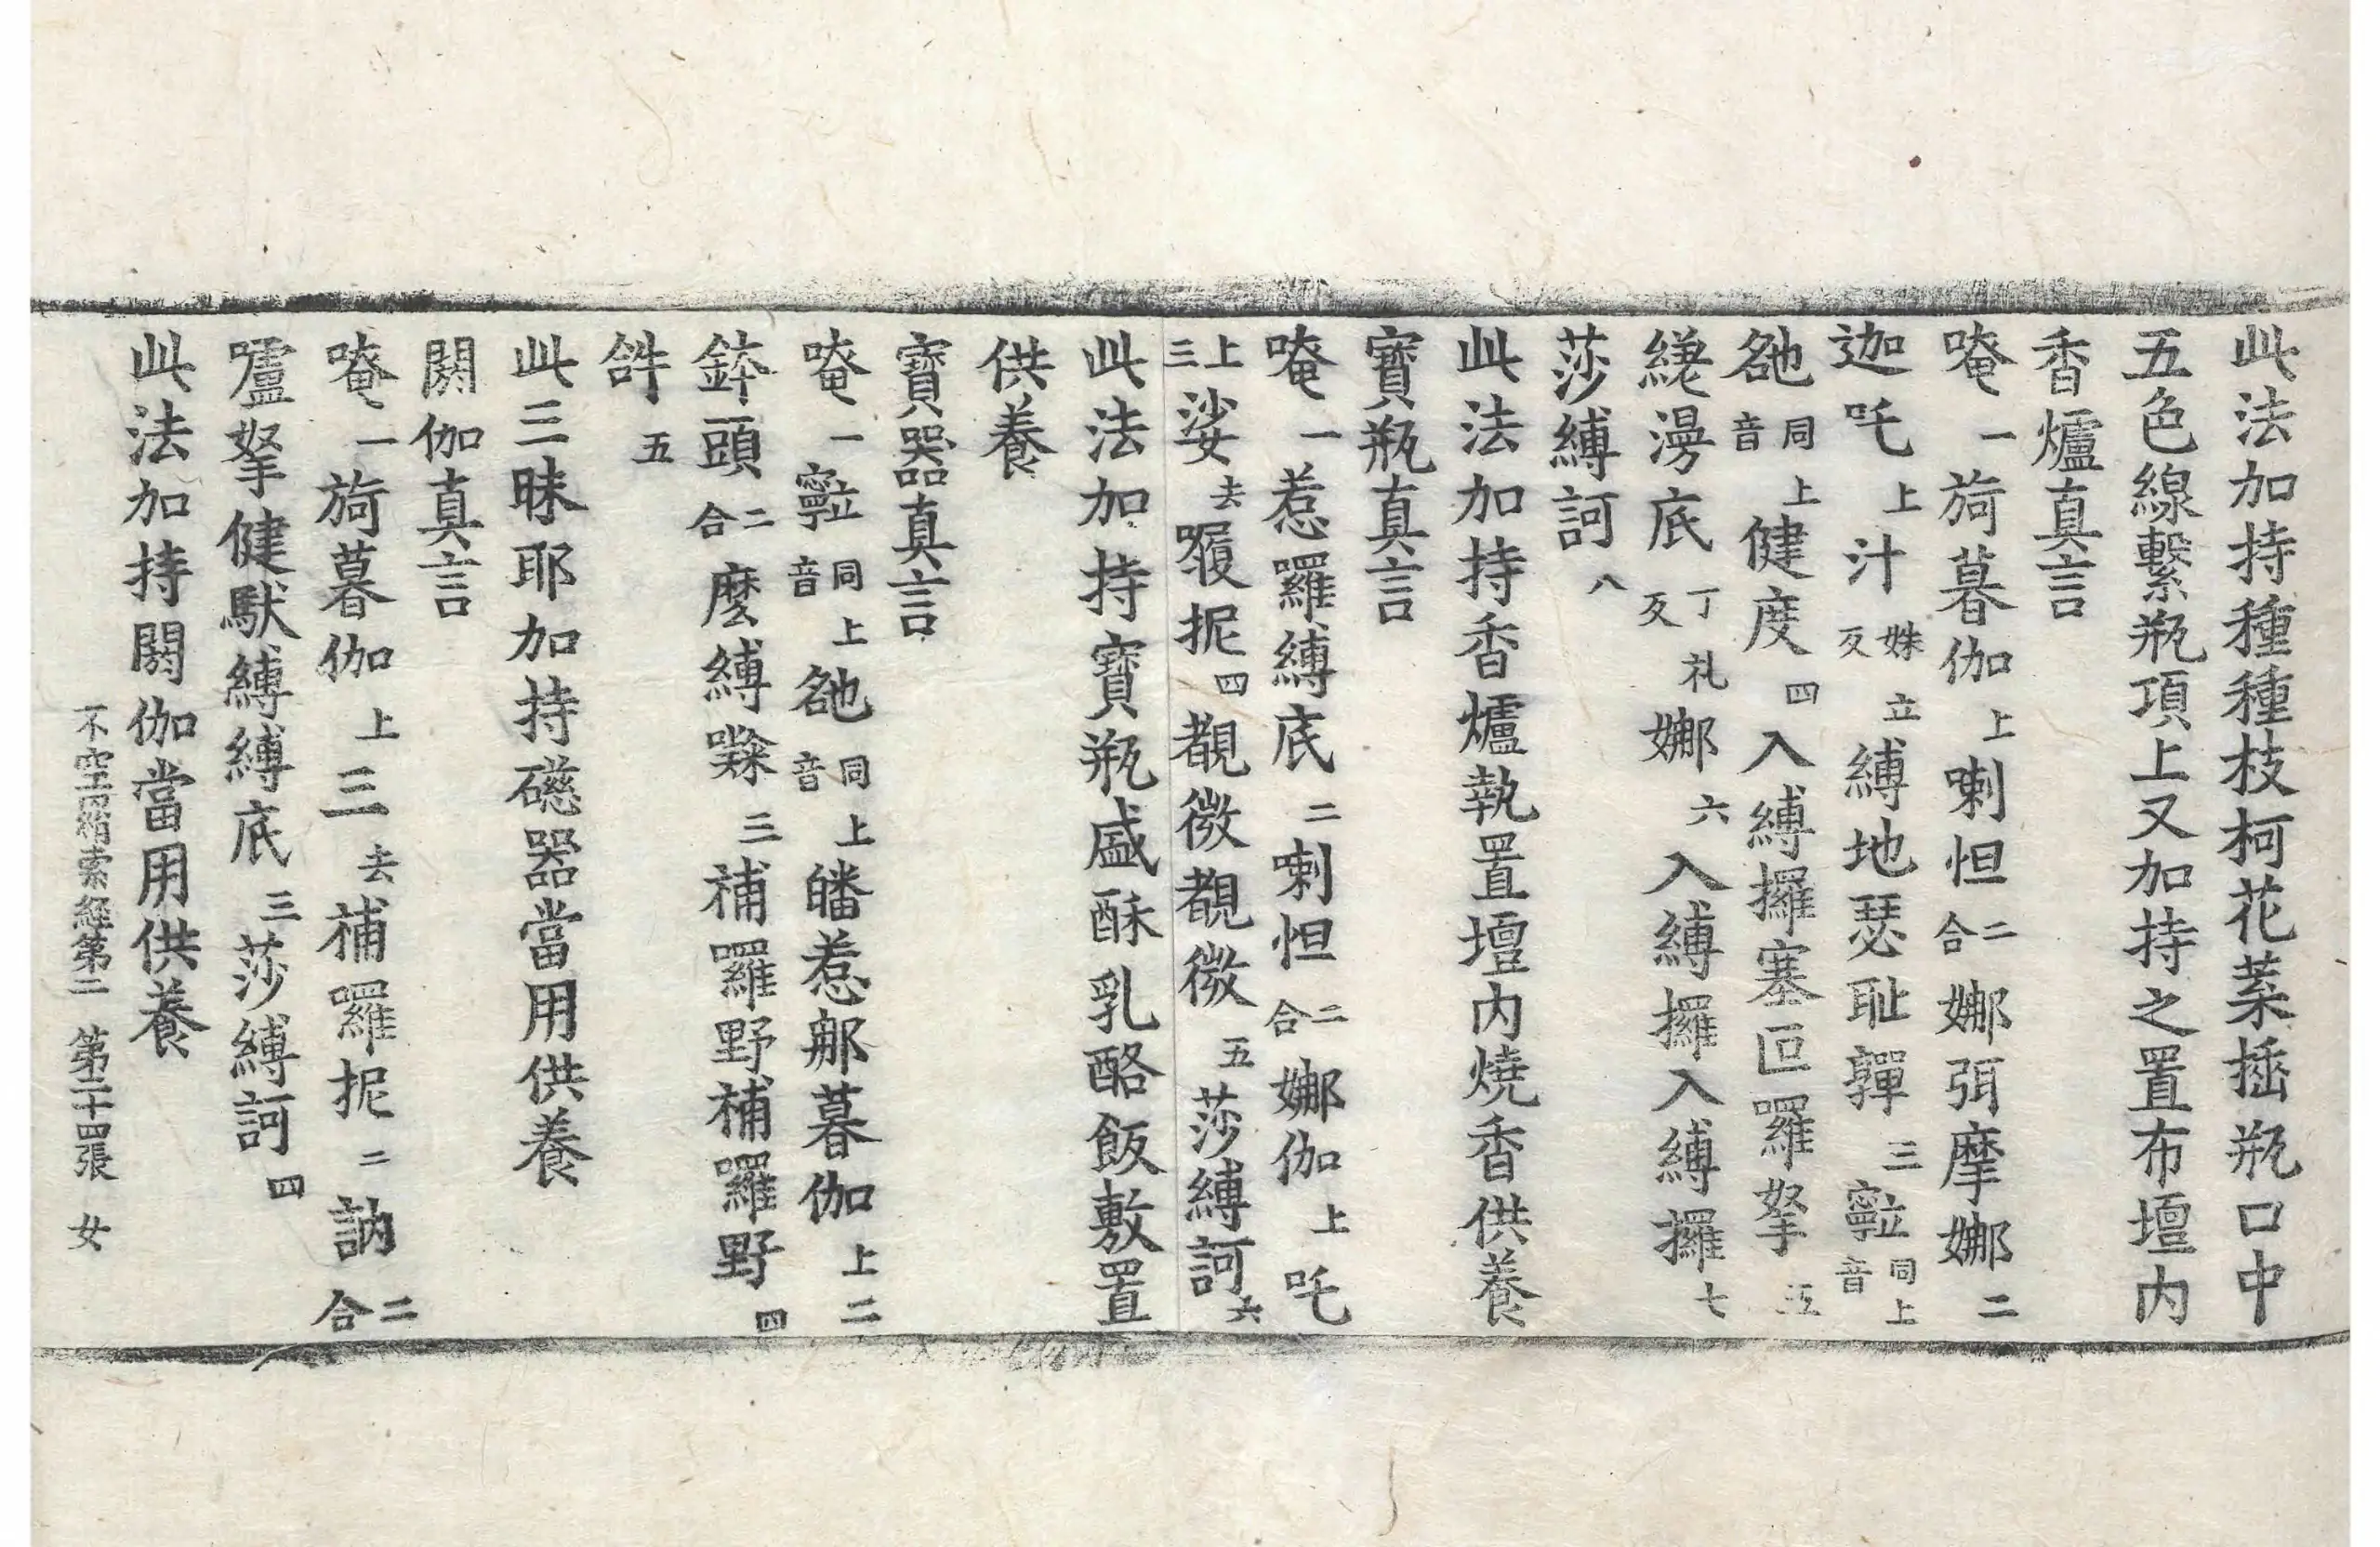 此法加持種種枝柯花菓插瓶口中
五色線繫瓶項上又加持之置布壇內
香爐真言
唵一旖暮伽上喇怛二合娜弭摩娜二
迦吒上汁姝立反縛地瑟耻𩏩三𤚥同上音
𦚾同上音健度四入縛攞塞叵羅拏五
繼漫底丁礼反娜六入縛攞入縛攞七
莎縛訶八
此法加持香爐執置壇內燒香供養
寶瓶真言
唵一惹囉縛底二喇怛二合娜伽上吒
上三娑去㘑抳四覩微覩微五莎縛訶六
此法加持寶瓶盛酥乳酪飯敷置
供養
寶器真言
唵一同上音同上音皤惹那暮伽上二
鉢頭二合麼縛㘑三補囉野補囉野四
𤙖五
此三昧耶加持磁器當用供養
閼伽真言
唵一旖暮伽上三去補囉抳二訥二合
嚧拏健馱縛縛底三莎縛訶四
此法加持閼伽當用供養
不空羂索経第二 第二十四張 女